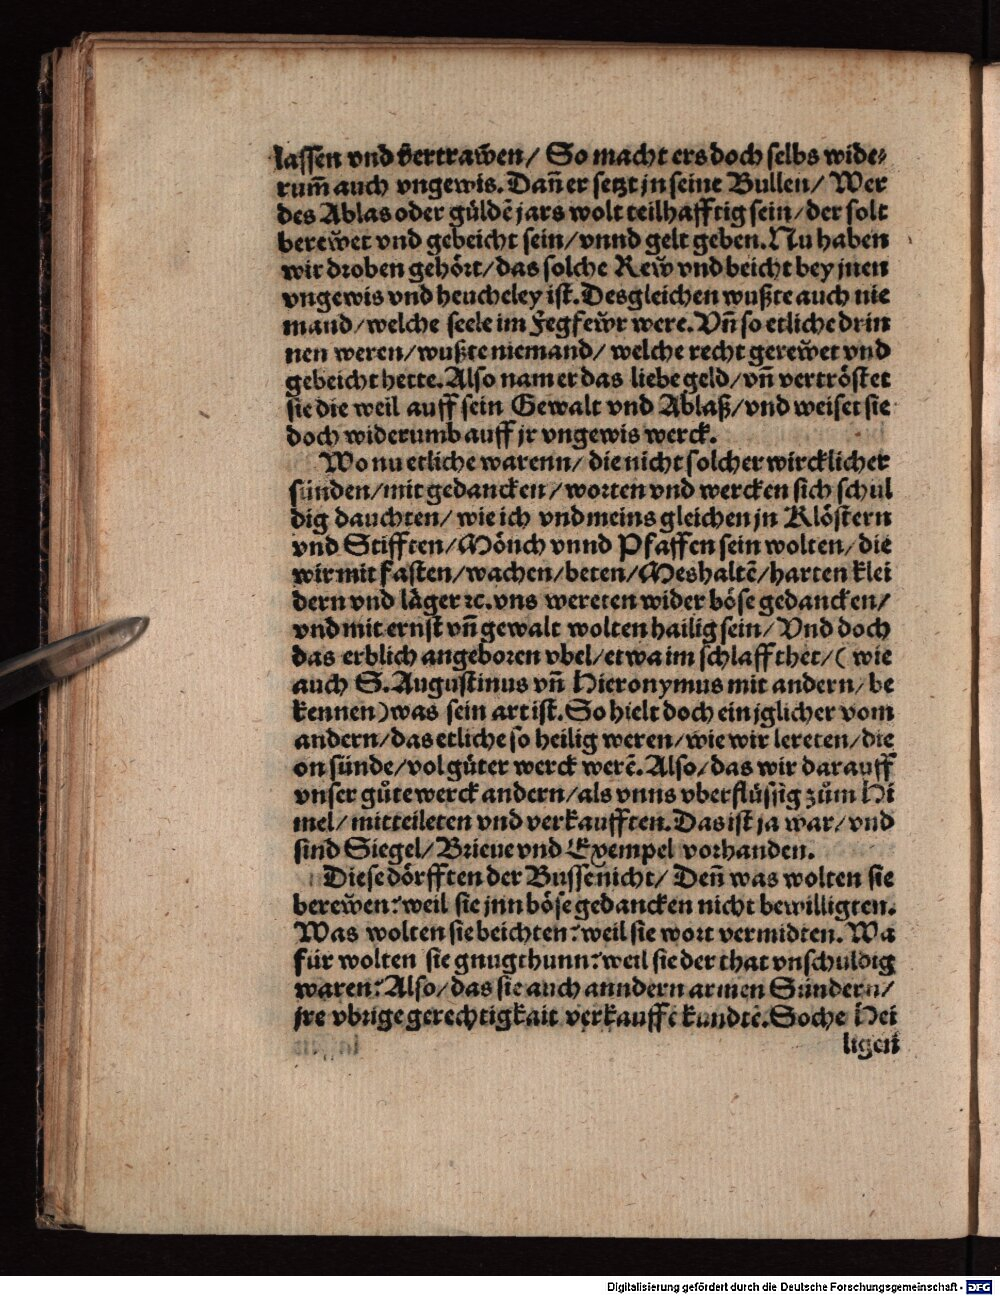 lassen vnd vertrawẽn/ So macht ers doch selbs wide⸗
rum̃ auch vngewis. Dañ er setzt jn seine Bullen/ Wer
des Ablas oder güldẽ jars wolt teilhafftig sein/ der solt
berew̃et vnd gebeicht sein/ vnnd gelt geben. Nu haben
wir droben gehört/ das solche Rew̃ vnd beicht bey jnen
vngewis vnd heucheley ist. Desgleichen wußte auch nie
mand/ welche seele im Fegfew̃r were. Vñ so etliche drin
nen weren/ wußte niemand/ welche recht gerew̃et vnd
gebeicht hette. Also nam er das liebe geld/ vñ vertröstet
sie die weil auff sein Gewalt vnd Ablaß/ vnd weiset sie
doch widerumb auff jr vngewis werck.
Wo nu etliche warenn/ die nicht solcher wircklicher
sünden/ mit gedancken/ worten vnd wercken sich schul
dig dauchten/ wie ich vnd meins gleichen jn Klöstern
vnd Stifften/ Mönch vnnd Pfaffen sein wolten/ die
wir mit fasten/ wachen/ beten/ Meshaltẽ/ harten klei
dern vnd läger ꝛc. vns wereten wider böse gedancken/
vnd mit ernst vñ gewalt wolten hailig sein/ Vnd doch
das erblich angeboren vbel/ etwa im schlaff thet/ (wie
auch S. Augustinus vñ Hieronymus mit andern/ be
kennen) was sein art ist. So hielt doch ein jglicher vom
andern/ das etliche so heilig weren/ wie wir lereten/ die
on sünde/ vol güter werck werẽ. Also/ das wir darauff
vnser gůte werck andern/ als vnns vberflüssig zům Hi
mel/ mitteileten vnd verkaufften. Das ist ja war/ vnd
sind Siegel/ Brieue vnd Exempel vorhanden.
Diese dörfften der Busse nicht/ Deñ was wolten sie
berew̃en? weil sie jnn böse gedancken nicht bewilligten.
Was wolten sie beichten? weil sie wort vermidten. Wa
für wolten sie gnugthunn? weil sie der that vnschuldig
waren? Also/ das sie auch anndern armen Sündern/
jre vbrige gerechtigkait verkauffẽ kundtẽ. Soche Hei
ligen
Digitalisierung gefördert durch die Deutsche Forschungsgemeinschaft - DFG